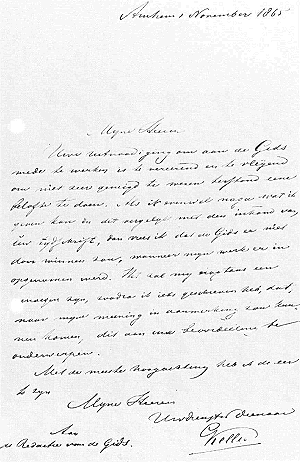 Arnhem 1 November 1865
Mijne Heeren
Uwe uitnoodiging om aan de Gids
mede te werken is te vereerend en te vleijend
om niet zeer geneigd te wezen terstond eene
belofte te doen. Als ik evenwel naga wat ik
geven kan in dit opzigt met den inhoud van
Uw tijdschrift, dan vrees ik dat de Gids er niet
door winnen zou, wanneer mijn werk er in
opgenomen werd. Ik zal mij
zijn, zoodra ik iets geschreven heb, dat
naar mijne meening in aanmerking zou kun-
nen komen, dit aan uwe beoordeeling te
onderwerpen.
Met de meeste hoogachting heb ik de eer
te zijn
Mijne Heeren
Uw dienaar
Aan
de Redactie van de Gids.